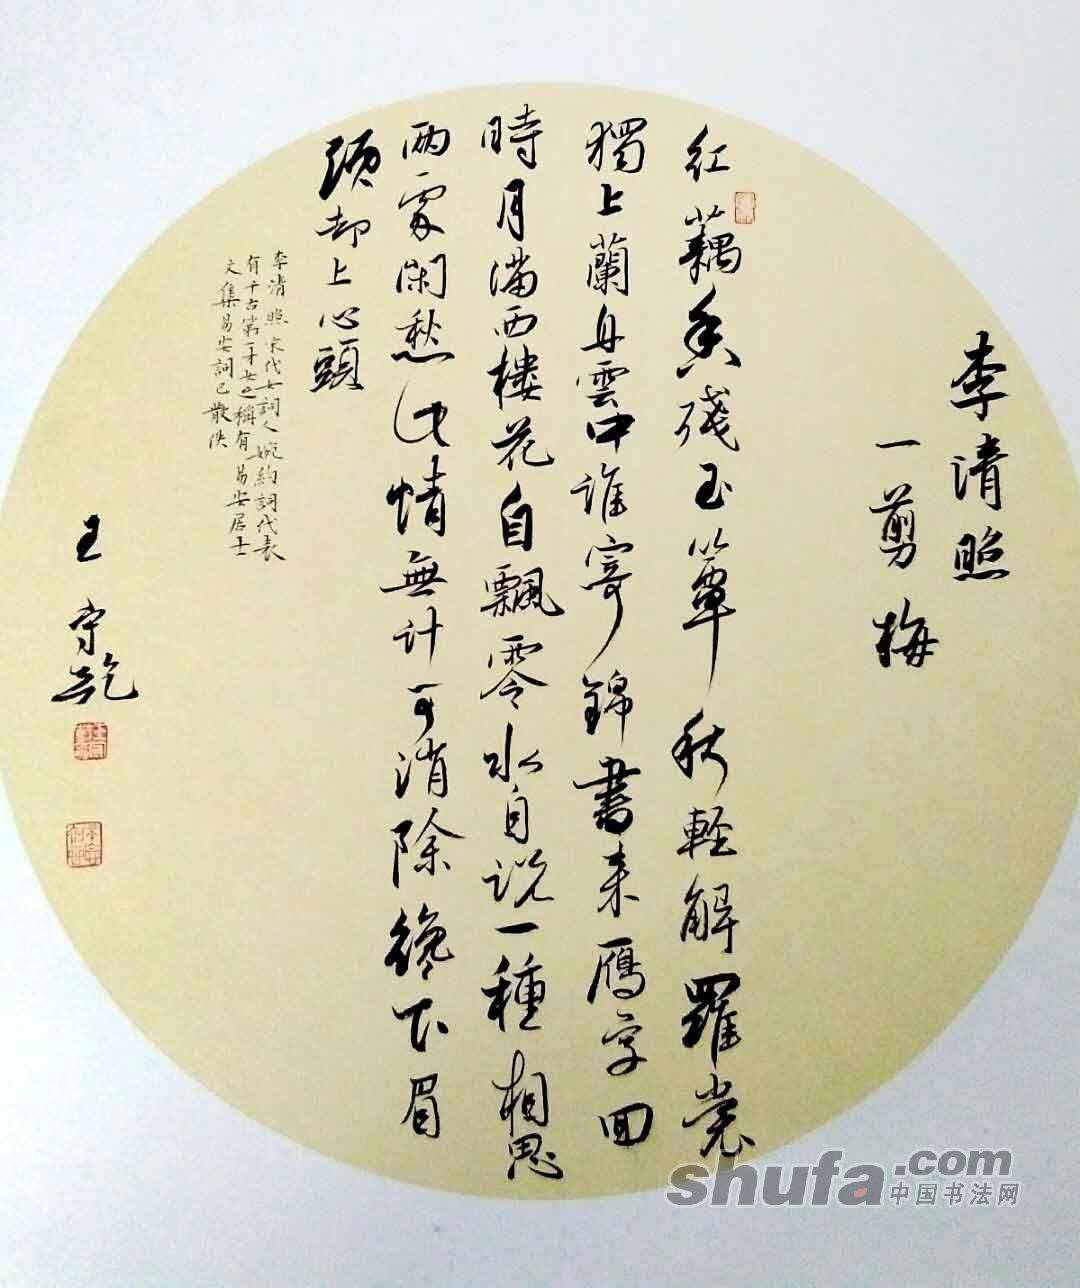 李清照
一剪梅
红藕香殘玉簟秋輕解羅裳
獨上蘭舟雲中誰寄錦書来雁字回
時月滿西樓花自飄零水自说一種相思
两處閑愁此情無计可消除纔下眉
頭却上心頭
李清照宋代女詞人婉約詞代表
有千古第一才女之稱有易安居士
文集易安詞已散佚
王守乾
shufa.com
中国书法网